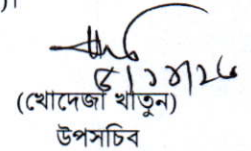 )।
(খোদেজা খাতুন)
উপসচিব